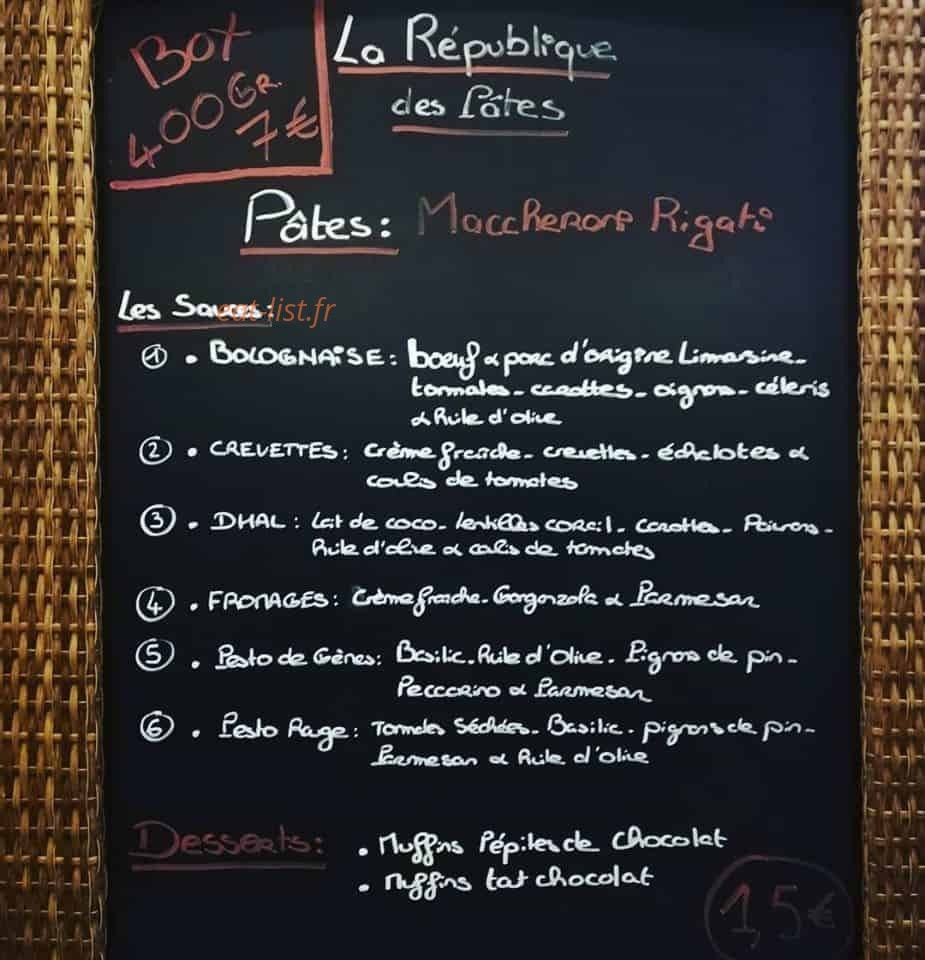 BOX
400 GR.
7€
La République
des Pâtes
Pâtes: Maccheroni Rigati
Les Sauces:
eat-list.fr
① . BOLOGNAISE: boeuf & porc d'origine Limousine-
tomates- carottes- oignon- céleris
& Huile d'olive
② . CREVETTES: Crème fraîche- crevettes- échalotes &
coulis de tomates
③ . DHAL: Lait de coco- lentilles corail- carottes- Poivrons-
Huile d'olive & coulis de tomates
④ . FROMAGES: Crème fraîche- Gorgonzola & Parmesan
⑤ . Pesto de Gènes: Basilic. Huile d'Olive. Pignons de pin-
Peccorino & Parmesan
⑥ . Pesto Rouge: Tomates Séchées- Basilic. pignons de pin-
Parmesan & Huile d'olive
Desserts: . Muffins Pépites de Chocolat
. Muffins tout chocolat
1,5€